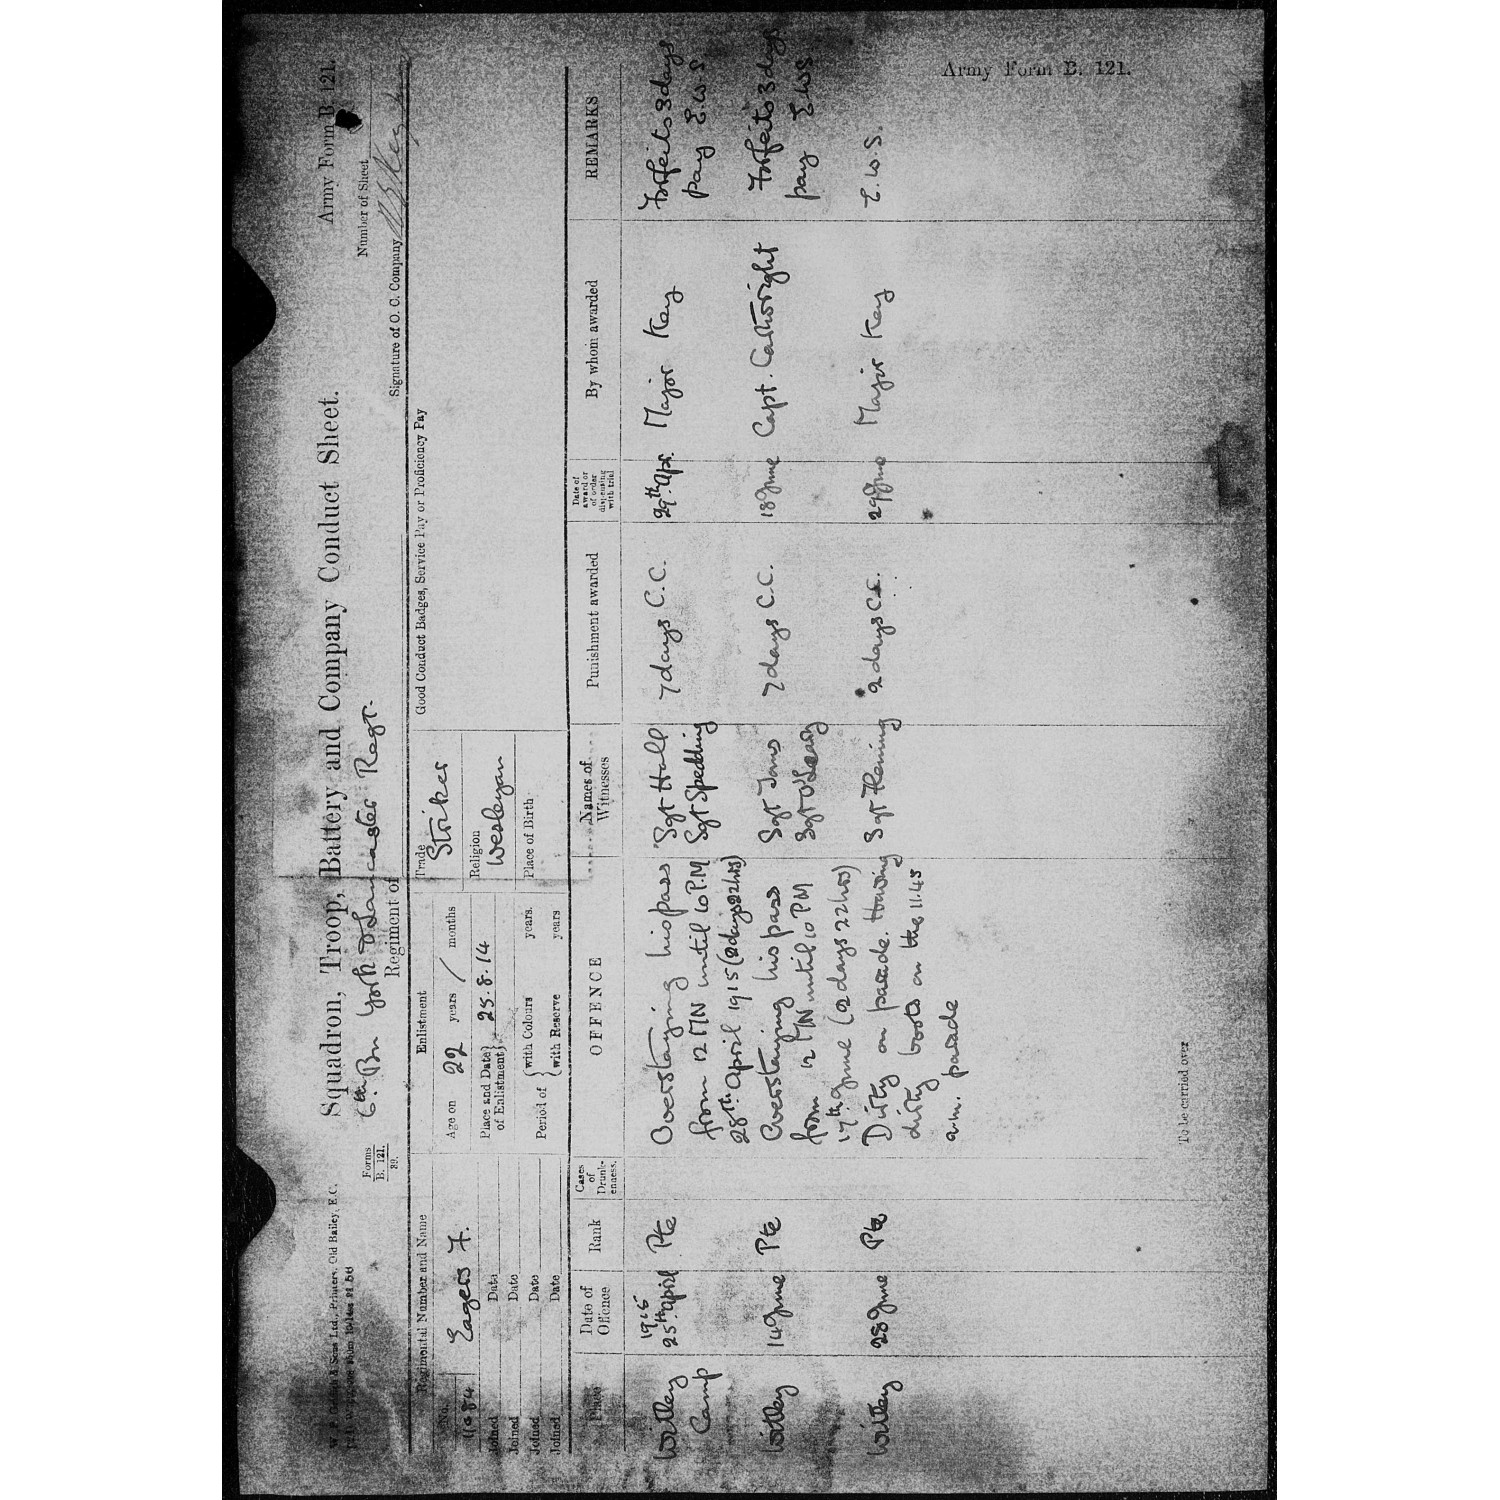 Army Form B. 121.
Squadron, Troop, Battery and Company Conduct Sheet.
Army Form B. 121.
Forms
B. 121.
39.
6th Bn York & Lancaster Regt.
Regiment of
Number of Sheet
Signature of O. C. Company
Regimental Number and Name
No.
Eagers F.
Joined Date
Joined Date
Joined Date
Joined Date
Enlistment
Age on 22 years / months
Place and Date of Enlistment} 25.8.14
Period of {with Colours years.
{with Reserve years
Trade
Striker
Religion
Wesleyan
Place of Birth
Good Conduct Badges, Service Pay or Proficiency Pay
Place
Date of Offence
Rank
Cases of Drunk-enness.
OFFENCE
Names of Witnesses
Punishment awarded
Date of award or of order dispensing with trial
By whom awarded
REMARKS
Witley Camp
1915
25th April
Pte
Overstaying his pass
from 12 MN until 10 P.M
28th April 1915 (2 days 22 hrs)
Sgt Hall
Sgt Spedding
7 days C.C.
29th Apr.
Major Key
Forfeits 3 days
Pay E.W.S
Witley
14 June
Pte
Overstaying his pass
from 12 MN until 10 PM
17th June (2 days 22 hrs)
Sgt
Sgt O'Leary
7 days C.C.
18 June
Capt. Cartwright
Forfeits 3 days
pay E.W.S
Witley
28 June
Pte
Dirty on parade. Having
dirty boots on the 11.45
a.m. parade
Sgt Fleming
2 days C.C.
29 June
Major Key
E.W.S.
To be carried over